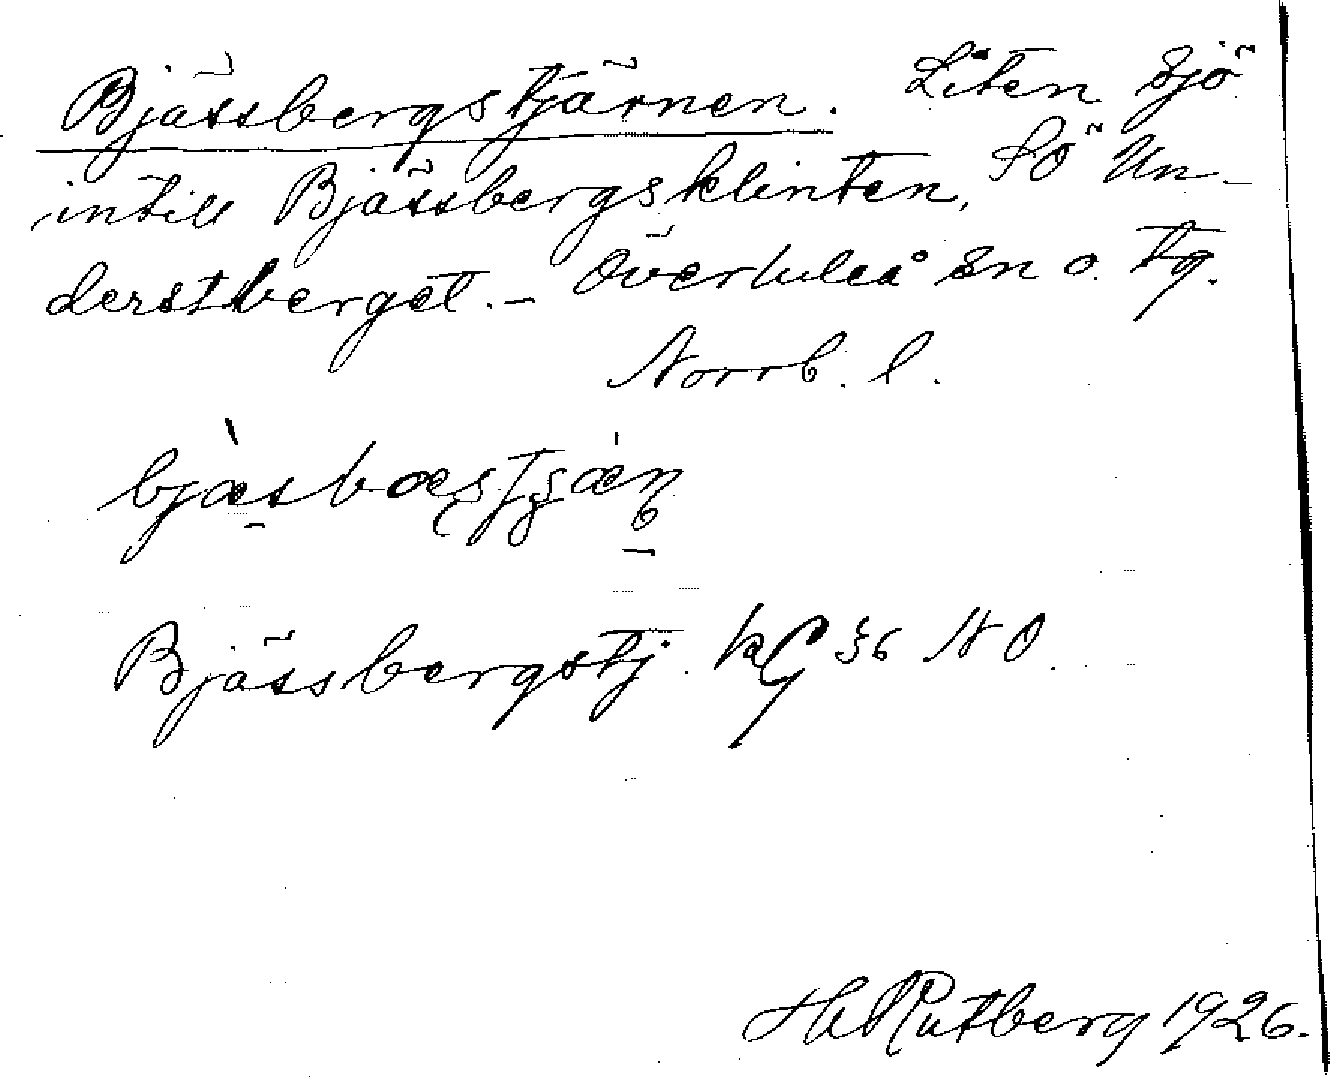 Bjässbergstjärnen. Liten sjö
intill Bjässbergsklinten, SÖ Un-
derstberget. - Överluleå sn o. tg.
Norrb. l.
Bjässbergstj. NO.
H. Rutberg 1926.